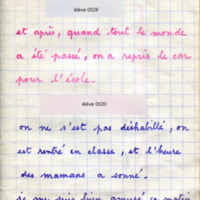 élève 0026
et après, quand tout le monde
a été passé, on a repris de car
pour l'école.
élève 0020
on ne s'est pas déshabillé, on
est rentré en classe, et l'heure
des mamans a sonné.
je me suis bien amusé ce matin